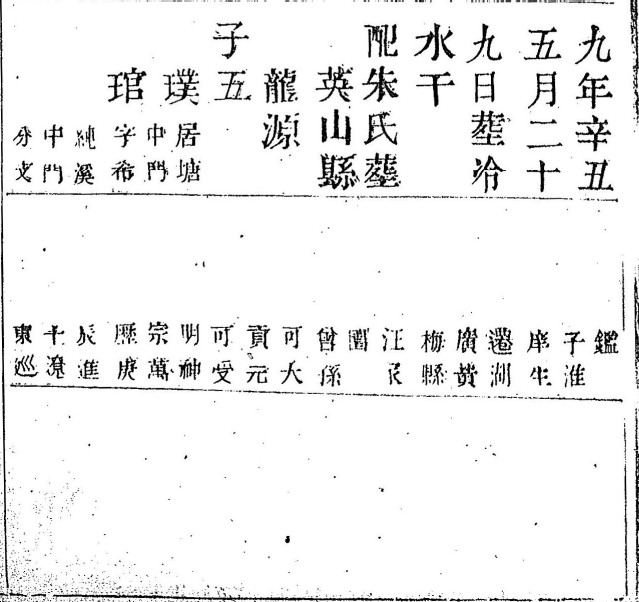 九年辛丑
五月二十
九日塟冷
水干
配朱氏塟
英山縣
龍源
子五
璞居塘
中門
琯字希
純溪
中門
分文
鑑
子淮
庠生
遷湖
廣黃
梅縣
汪
圍
曾孫
可大
貢元
可受
明神
宗萬
歷庚
辰進
士
東巡